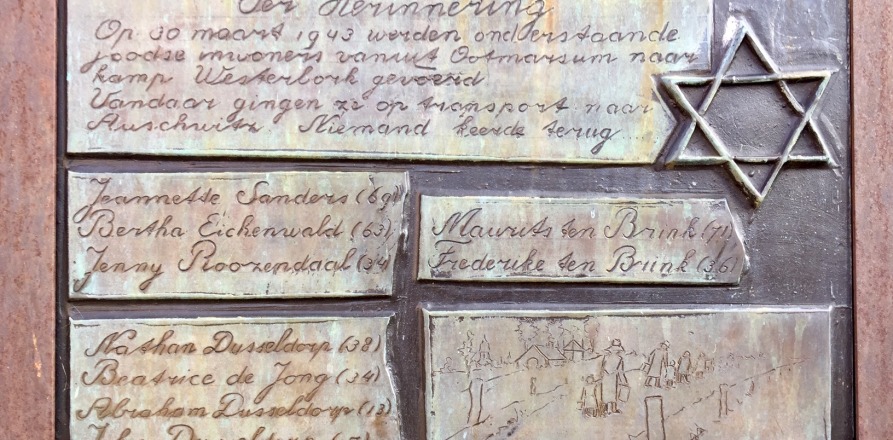 Ter Herinnering
Op 30 maart 1943 werden onderstaande
joodse inwoners vanuit Ootmarsum naar
kamp Westerbork gevoerd
Vandaar gingen ze op transport naar
Auschwitz. Niemand keerde terug...
Jeannette Sanders (69)
Bertha Eichenwald (63)
Jenny Roozendaal (34)
Maurits ten Brink (71)
Frederike ten Brink (36)
Nathan Dusseldorp (38)
Beatrice de Jong (34)
Abraham Dusseldorp (13)
Dusseldorp (7)